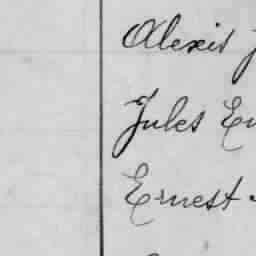 Alexis
Jules
Ernest